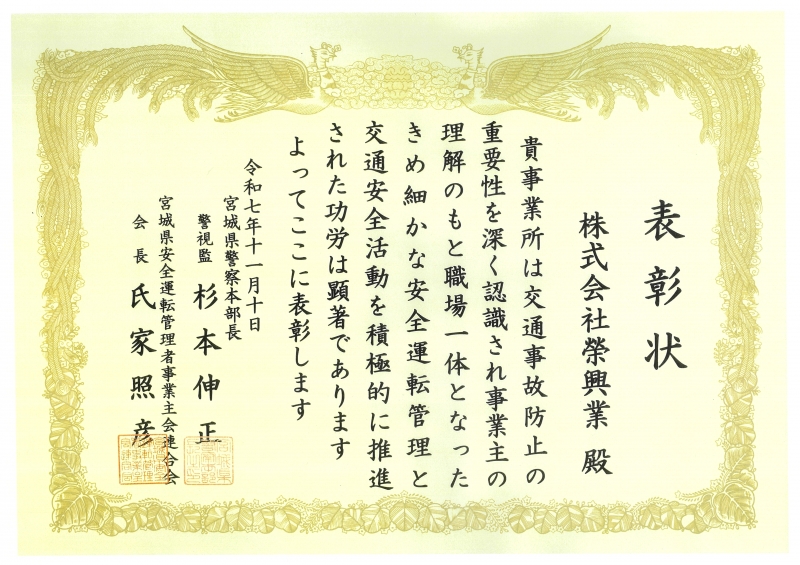 表彰状
株式会社榮興業 殿
貴事業所は交通事故防止の
重要性を深く認識され事業主の
理解のもと職場一体となった
きめ細かな安全運転管理と
交通安全活動を積極的に推進
された功労は顕著であります
よってここに表彰します
令和七年十一月十日
宮城県警察本部長
警視監 杉本伸正
宮城県安全運転管理者事業主会連合会
会長 氏家照彦